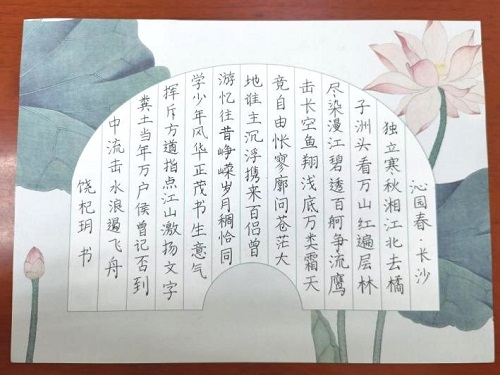 沁园春·长沙
独立寒秋湘江北去橘
子洲头看万山红遍层林
尽染漫江碧透百舸争流鹰
击长空鱼翔浅底万类霜天
竞自由怅寥廓问苍茫大
地谁主沉浮携来百侣曾
游忆往昔峥嵘岁月稠恰同
学少年风华正茂书生意气
挥斥方遒指点江山激扬文字
粪土当年万户侯曾记否到
中流击水浪遏飞舟
饶杞玥 书